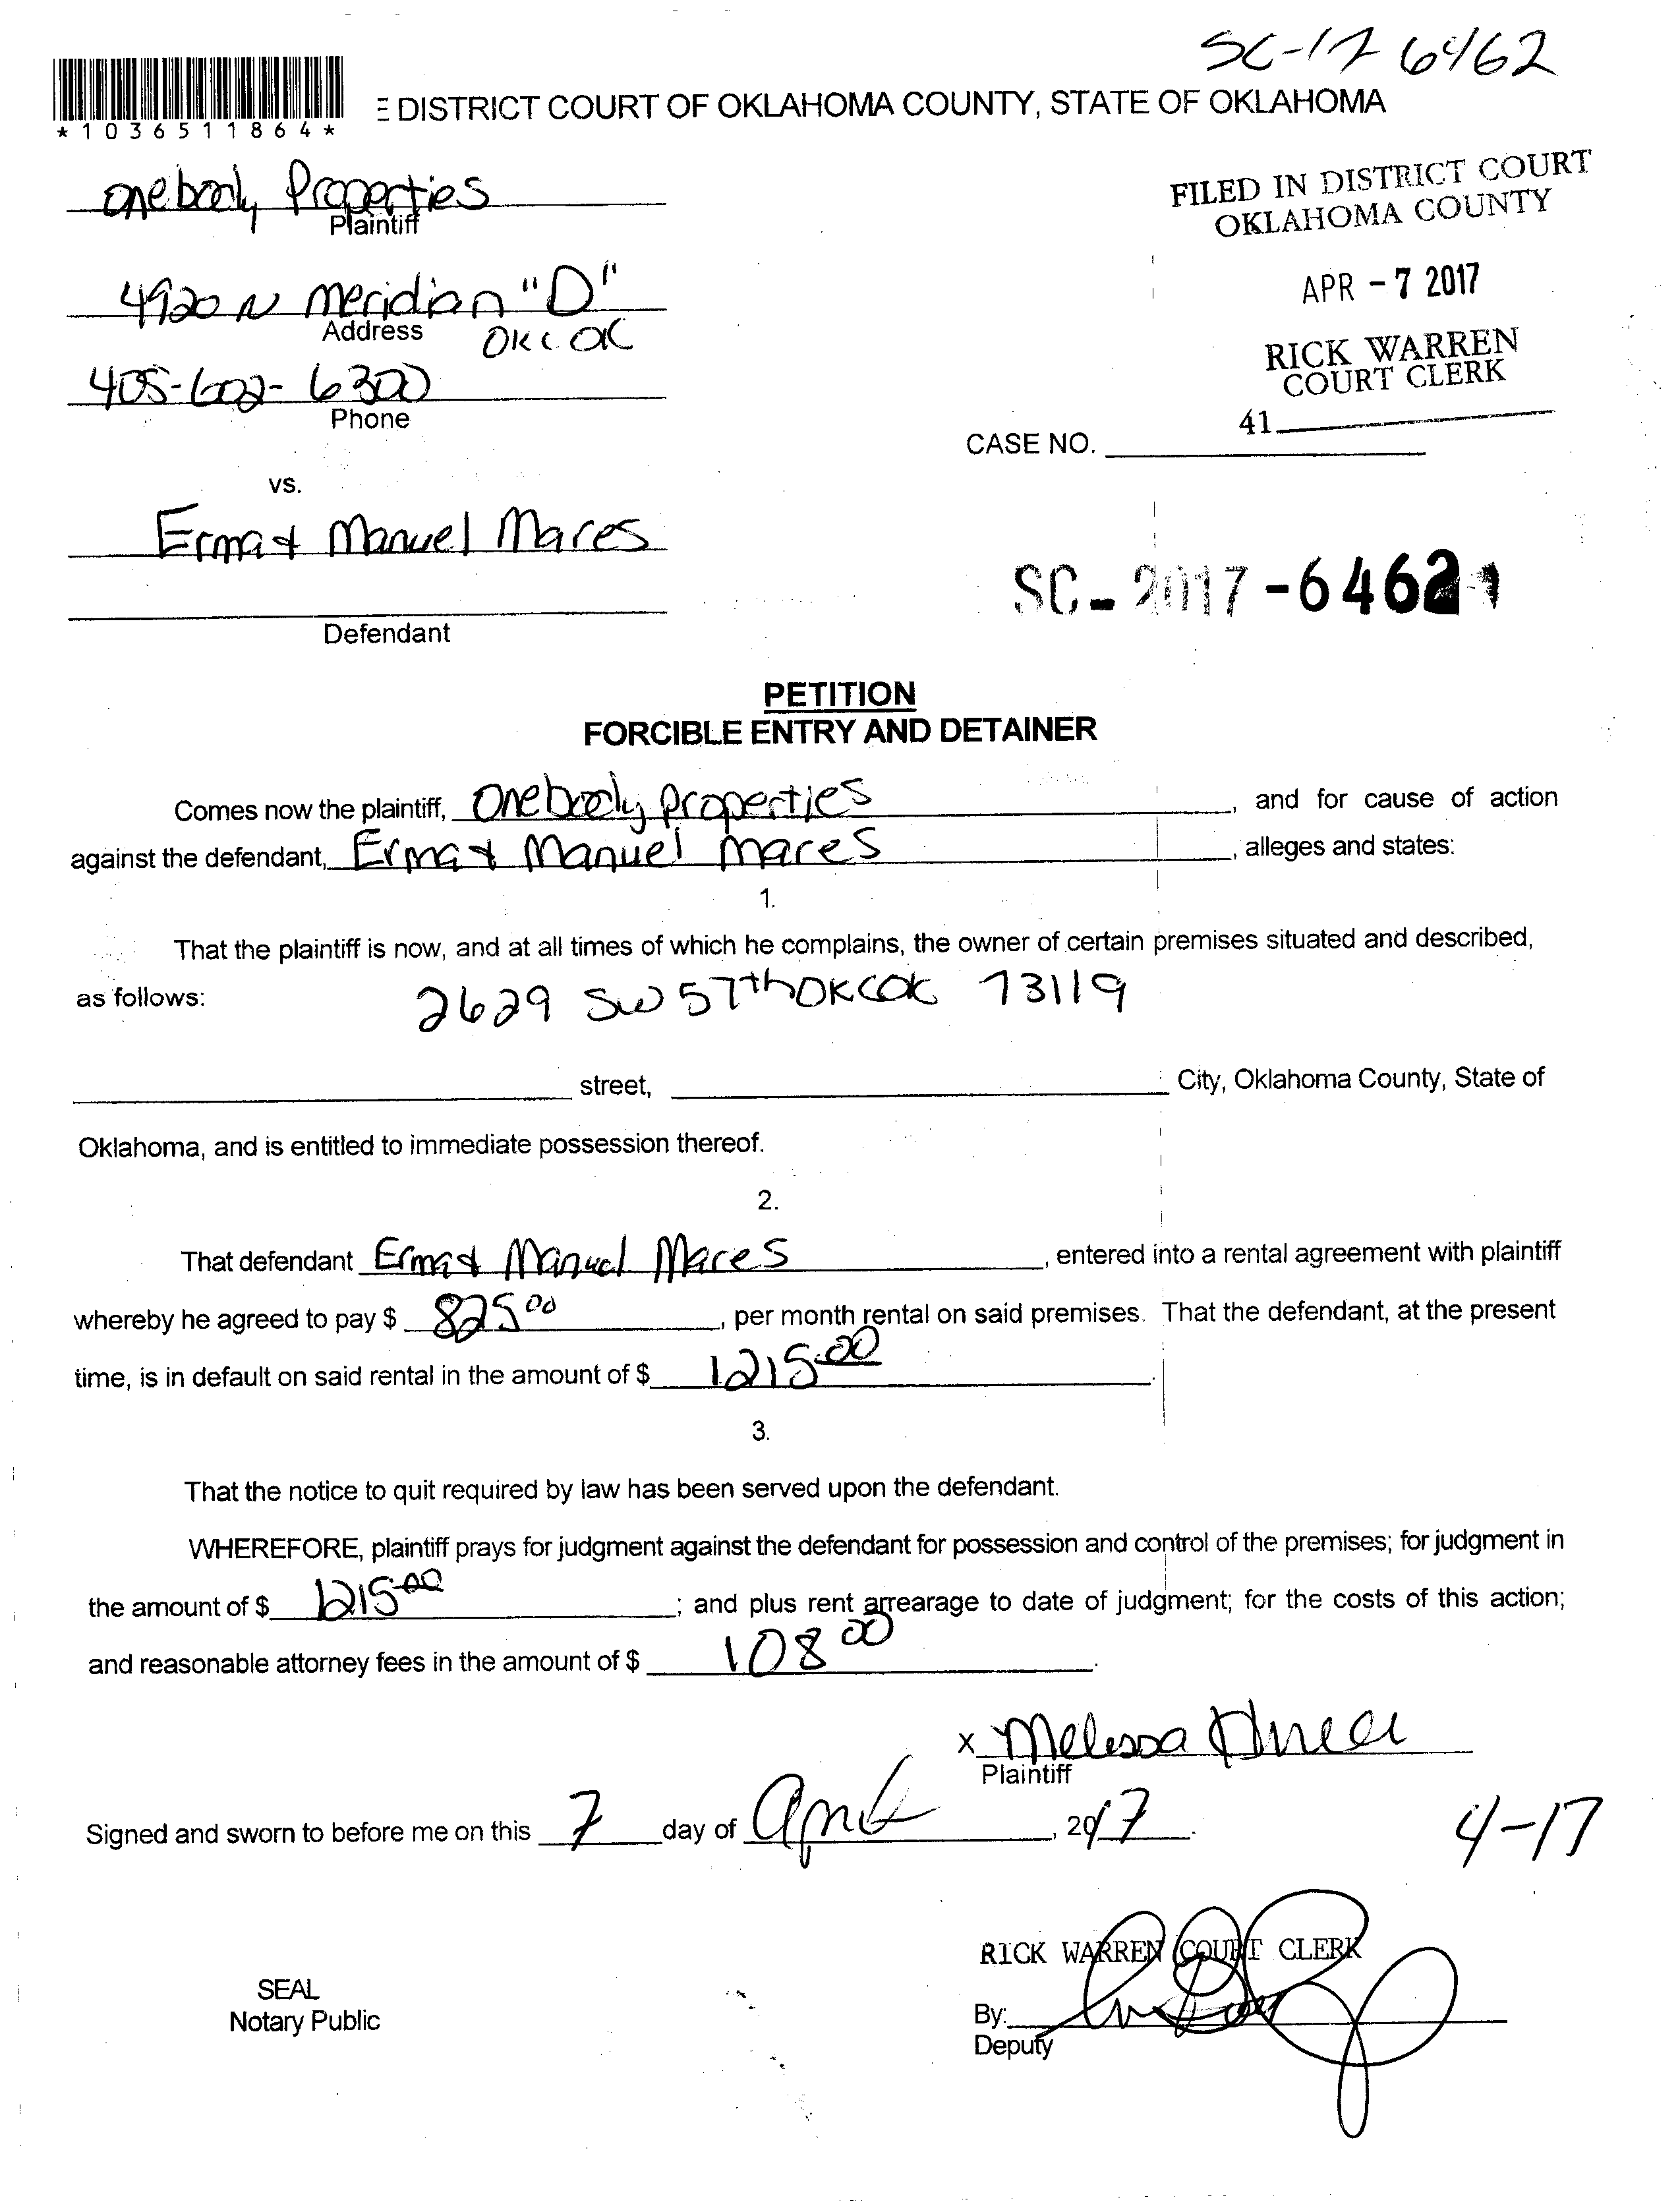 SC-17 6462
*1036511864*
E DISTRICT COURT OF OKLAHOMA COUNTY, STATE OF OKLAHOMA
onebody Properties
Plaintiff
FILED IN DISTRICT COURT
OKLAHOMA COUNTY
4920 N meridian "D"
Address OKC OK
APR - 7 2017
405-602-6300
Phone
RICK WARREN
COURT CLERK
41
CASE NO.
vs.
Erma & Manuel Mares
SC-2017-6462
Defendant
PETITION
FORCIBLE ENTRY AND DETAINER
Comes now the plaintiff, Onebody properties, and for cause of action
against the defendant, Erma & Manuel mares, alleges and states:
1.
That the plaintiff is now, and at all times of which he complains, the owner of certain premises situated and described,
as follows: 2629 SW 57th OKC OK 73119
street, City, Oklahoma County, State of
Oklahoma, and is entitled to immediate possession thereof.
2.
That defendant Erma & Manuel Mares, entered into a rental agreement with plaintiff
whereby he agreed to pay $ 825 00, per month rental on said premises. That the defendant, at the present
time, is in default on said rental in the amount of $ 1215.00.
3.
That the notice to quit required by law has been served upon the defendant.
WHEREFORE, plaintiff prays for judgment against the defendant for possession and control of the premises; for judgment in
the amount of $ 1215.00; and plus rent arrearage to date of judgment; for the costs of this action;
and reasonable attorney fees in the amount of $ 108 00.
x Melissa
Plaintiff
Signed and sworn to before me on this 7 day of April, 2017.
4-17
RICK WARREN COURT CLERK
SEAL
Notary Public
By:
Deputy